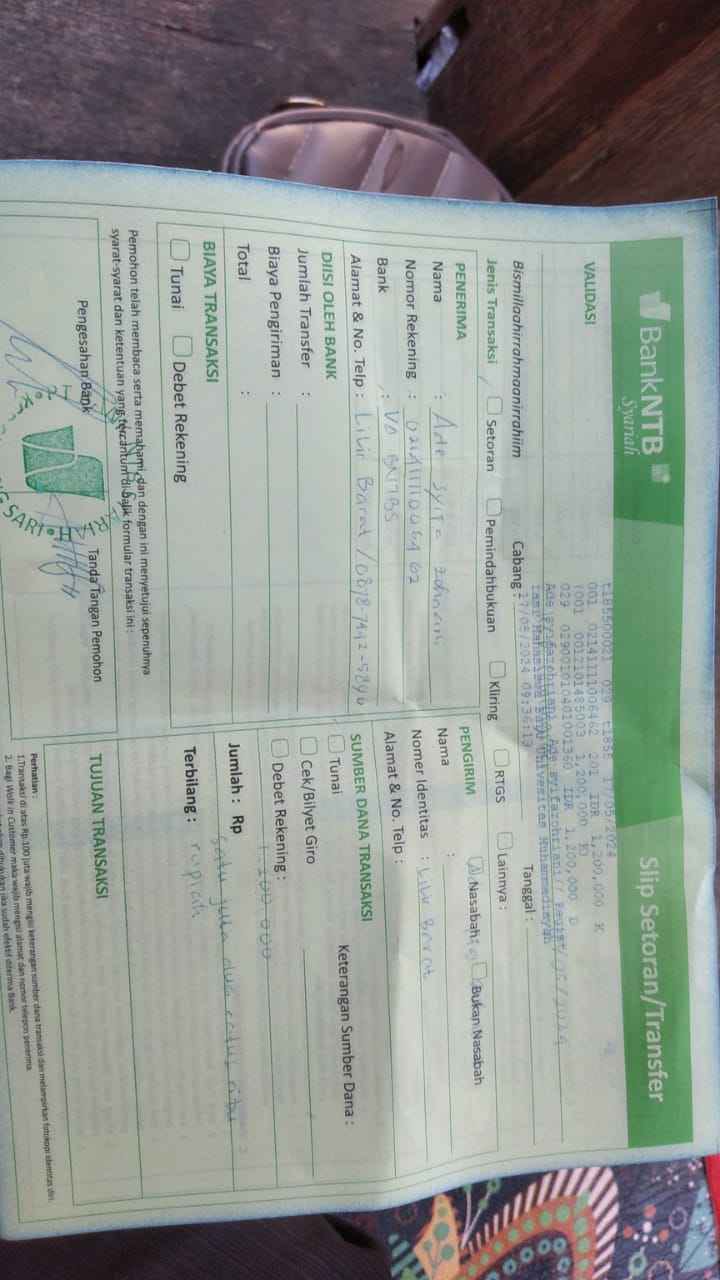 BankNTB
Syariah
Slip Setoran/Transfer
VALIDASI
t1855 17/05/2024
001 02141111006462 201 IDR 1,200,000 K
(001 0012101485003 1,200,000 K)
029 029001010401001360 IDR 1,200,000 D
17/05/2024 09:36:13
Bismillaahirrahmaanirrahiim
Cabang :
Tanggal :
Jenis Transaksi
Setoran
Pemindahbukuan
Kliring
RTGS
Lainnya :
PENERIMA
Nama : Ade
Nomor Rekening :
Bank :
Alamat & No. Telp : Lilir Barat /
PENGIRIM
Nasabah
Bukan Nasabah
Nama :
Nomer Identitas : Lilir Barat
Alamat & No. Telp :
DIISI OLEH BANK
Jumlah Transfer :
Biaya Pengiriman :
Total :
SUMBER DANA TRANSAKSI
Tunai
Keterangan Sumber Dana :
Cek/Bilyet Giro
Debet Rekening :
BIAYA TRANSAKSI
Tunai
Debet Rekening
Jumlah : Rp 1.200.000
Terbilang : satu juta dua ratus ribu
rupiah
Pemohon telah membaca serta memahami, dan dengan ini menyetujui sepenuhnya
syarat-syarat dan ketentuan yang tercantum di balik formular transaksi ini :
Pengesahan Bank
Tanda Tangan Pemohon
TUJUAN TRANSAKSI
Perhatian :
1.Transaksi di atas Rp.100 juta wajib mengisi keterangan sumber dana transaksi dan melampirkan fotokopi identitas diri.
2. Bagi Walk in Customer maka wajib mengisi alamat dan nomor telepon penerima.